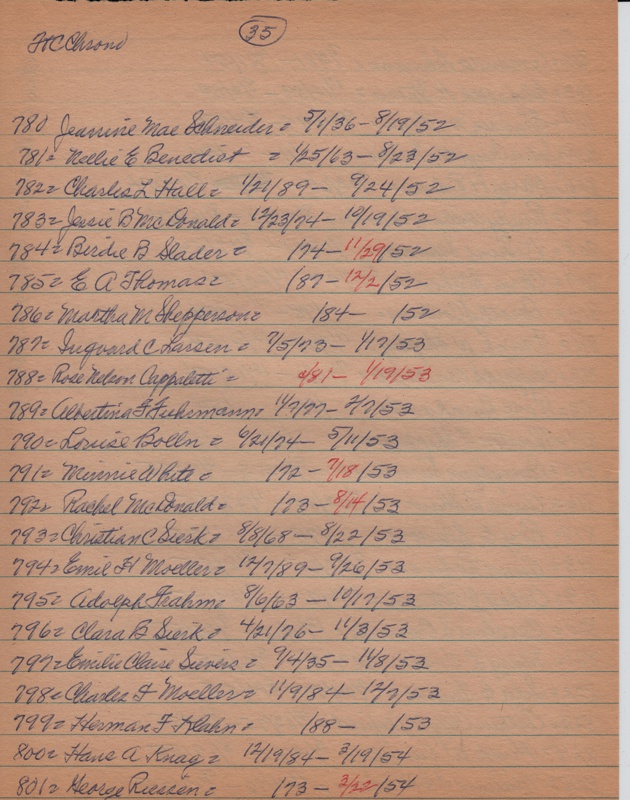 35
HC Chrono
780 Jeannine Mae Schneider = 5/1/36 - 8/19/52
781 = Nellie E Benedict = 1/25/63 - 8/23/52
782 = Charles L Hall = 1/21/89 - 9/24/52
783 = Jessie B McDonald = 12/23/74 - 10/19/52
784 = Birdie B Slader = /74 - 11/29/52
785 = E A Thomas = /87 - 12/2/52
786 = Martha M Shepperson = /84 - /52
787 = Ingvard C Larsen = 7/5/73 - 1/17/53
788 = Rose Nelson Cappaletti = /81 - 1/19/53
789 = Albertina F Fuhrmann = 11/7/77 - 2/7/53
790 = Louise Bolln = 6/21/74 - 5/11/53
791 = Minnie White = /72 - 7/18/53
792 = Rachel McDonald = /73 - 8/14/53
793 = Christian C Sierk = 8/8/68 - 8/22/53
794 = Emil H Moeller = 12/7/89 - 9/26/53
795 = Adolph Frahm = 8/6/63 - 10/17/53
796 = Clara B Sierk = 4/21/76 - 11/3/53
797 = Emilie Claire Sievers = 9/4/35 - 11/8/53
798 = Charles F Moeller = 11/9/84 - 12/7/53
799 = Herman F Klahn = /88 - /53
800 = Hans A Knag = 12/19/84 - 3/19/54
801 = George Riessen = /73 - 3/22/54